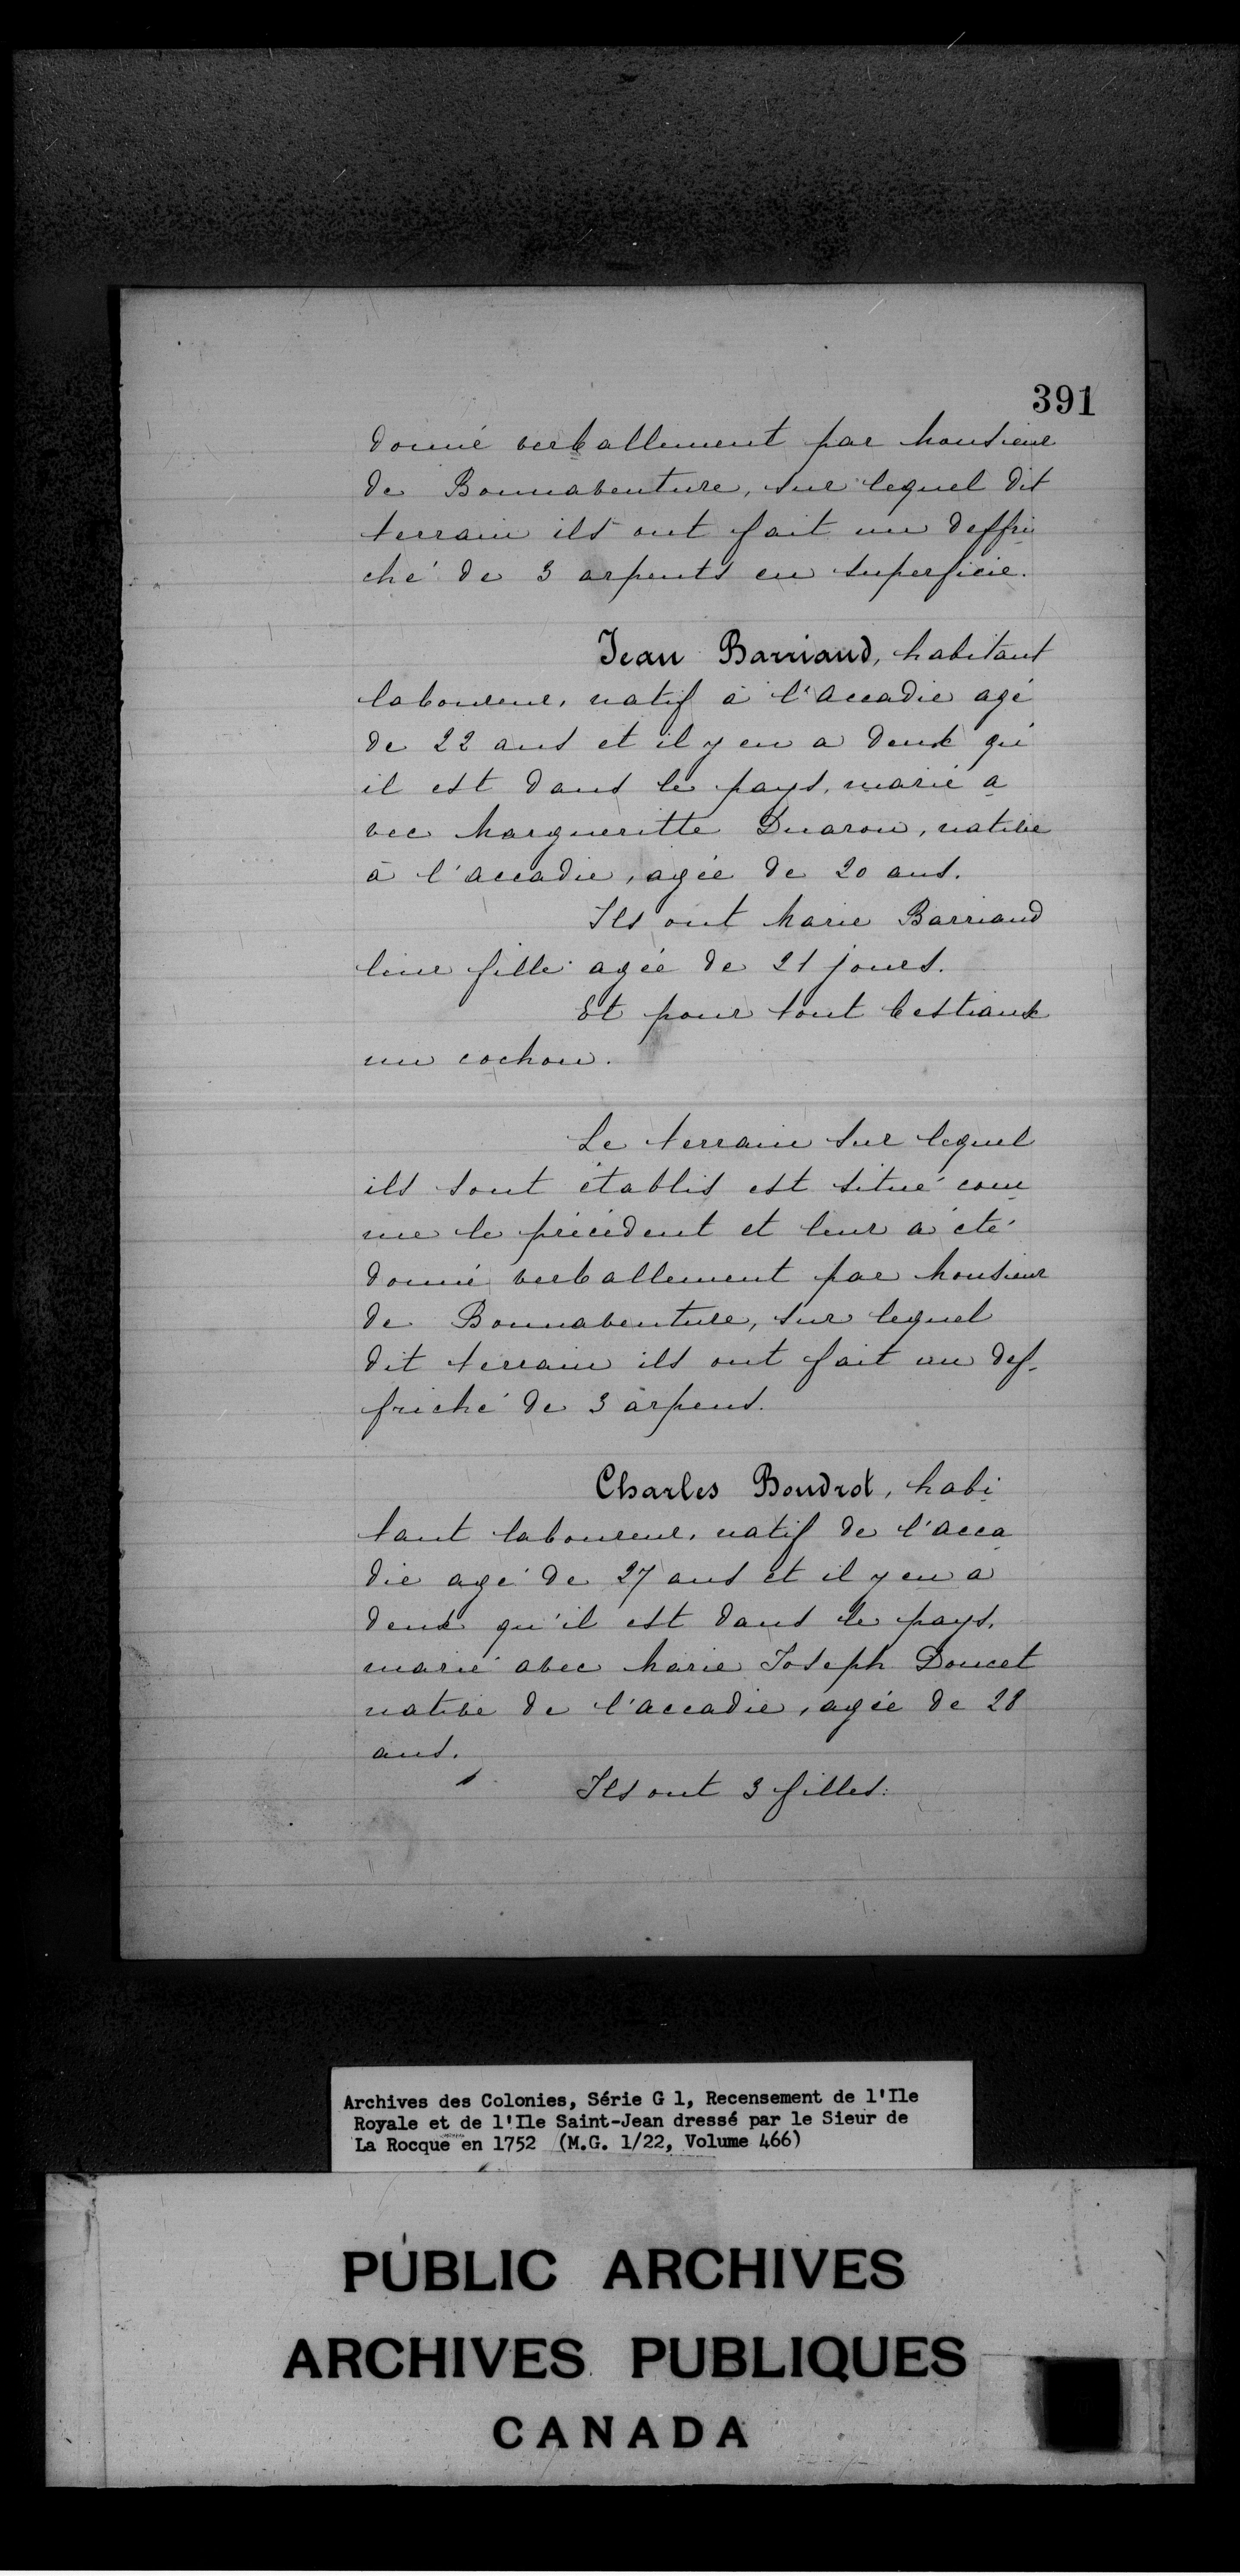 391
donné verballement par Monsieur
de Bonnaventure, sur lequel dit
terrain ils ont fait un deffri
ché de 3 arpents en superficie.
Jean Barriaud, habitant
laboureur, natif à l'accadie agé
de 22 ans et il y en a deux qu'
il est dans le pays, marié a
vec Margueritte Duaron, native
à l'accadie, agée de 20 ans.
Ils ont Marie Barriaud
leur fille agée de 21 jours.
Et pour tout bestiaux
un cochon.
Le terrain sur lequel
ils sont établis est situé com
me le précédent et leur a été
donné verballement par Monsieur
de Bonnaventure, sur lequel
dit terrain ils ont fait un def-
friché de 3 arpens.
Charles Boudrot, habi
tant laboureur, natif de l'acca
die agé de 27 ans et il y en a
deux qu'il est dans le pays,
marié avec Marie Joseph Doucet
native de l'accadie, agée de 28
ans.
Ils ont 3 filles:
Archives des Colonies, Série G 1, Recensement de l'Ile
Royale et de l'Ile Saint-Jean dressé par le Sieur de
La Rocque en 1752 (M.G. 1/22, Volume 466)
PUBLIC ARCHIVES
ARCHIVES PUBLIQUES
CANADA